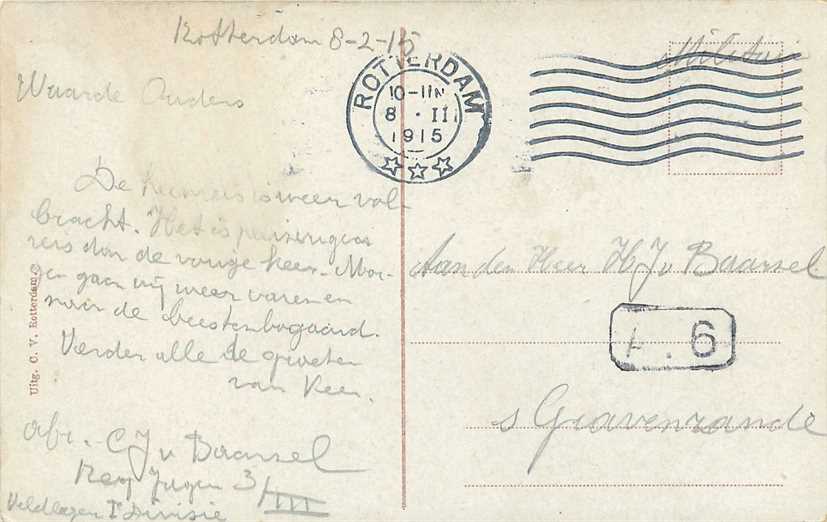 Rotterdam 8-2-15
Waarde Ouders
De heenreis is weer vol-
bracht. Het is
reis dan de vorige keer. Mor-
gen gaan wij weer varen en
naar de beestenbogaard.
Verder alle de groeten
van Kees.
afz. C J v Baarsel
3/III
Veldleger I Divisie
Uitg. C. V. Rotterdam.
ROTTERDAM
10-11N
8 · III
1915
Militair
Aan den Heer H J v Baarsel
A. 6
s Gravenzande